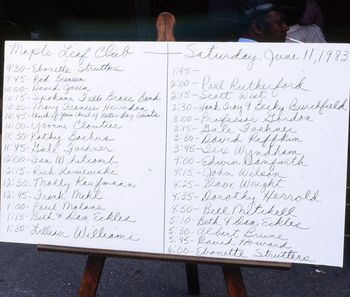 Maple Leaf Club — Saturday, June 11, 1983
9:30 - Ebonette Strutters
9:45 - Rod
10:00 - David Joyen
10:15 - Spokane Falls Brass Band
10:30 - Mary Frances Herndon
10:45 - of Latter Day Saints
11:00 - Yvonne Cloutier
11:30 - Kathy
11:45 - Gale Foehner
12:00 - Ian Whitcomb
12:15 - Rich
12:30 - Molly Kaufmann
12:45 - Frank Mehl
1:00 - Paul
1:15 - Beth & Dan Eckles
1:30 - Lillian Williams
1:45 -
2:00 - Paul Rutherford
2:15 - Scott West
2:30 - Hank Troy & Becky Burchfield
3:00 - Professor Gordon
3:15 - Gale Foehner
3:30 - David Reffkin
3:45 - Syx Wyndham
4:00 - Edwin Danforth
4:15 - John Wilson
4:25 - Dave Wright
4:35 - Dorothy Herrold
4:50 - Bill Mitchell
5:10 - Beth & Dan Eckles
5:30 - Albert Brune
5:45 - David Howard
6:00 - Ebonette Strutters